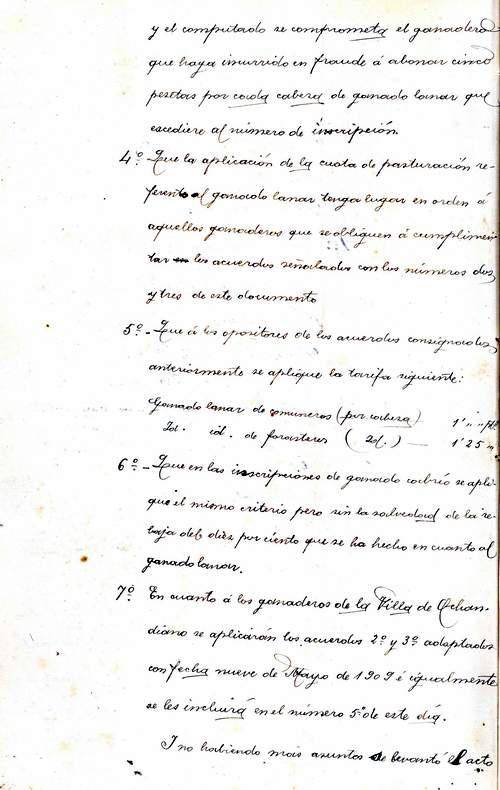 y el computado se comprometa el ganadero
que haya incurrido en fraude á abonar cinco
pesetas por cada cabeza de ganado lanar que
escediere al número de inscripción.
4º- Que la aplicación de la cuota de pasturación re-
ferente al ganado lanar tenga lugar en orden á
aquellos ganaderos que se obliguen á cumplimen
tar los acuerdos señalados con los números dos
y tres de este documento
5º- Que á los opositores de los acuerdos consignados
anteriormente se aplique la tarifa siguiente:
Ganado lanar de comuneros (por cabeza) 1'
Id. id. de forasteros (Id.) — 1'25 "
6º- Que en las inscripciones de ganado cabrío se apli-
que el mismo criterio pero sin la salvedad de la re-
baja del diez por ciento que se ha hecho en cuanto al
ganado lanar.
7º En cuanto á los ganaderos de la Villa de Ochan-
diano se aplicarán los acuerdos 2º y 3º adoptados
con fecha nueve de Mayo de 1909 é igualmente
se les incluirá en el número 5º de este día.
I no habiendo más asuntos se levantó el acto